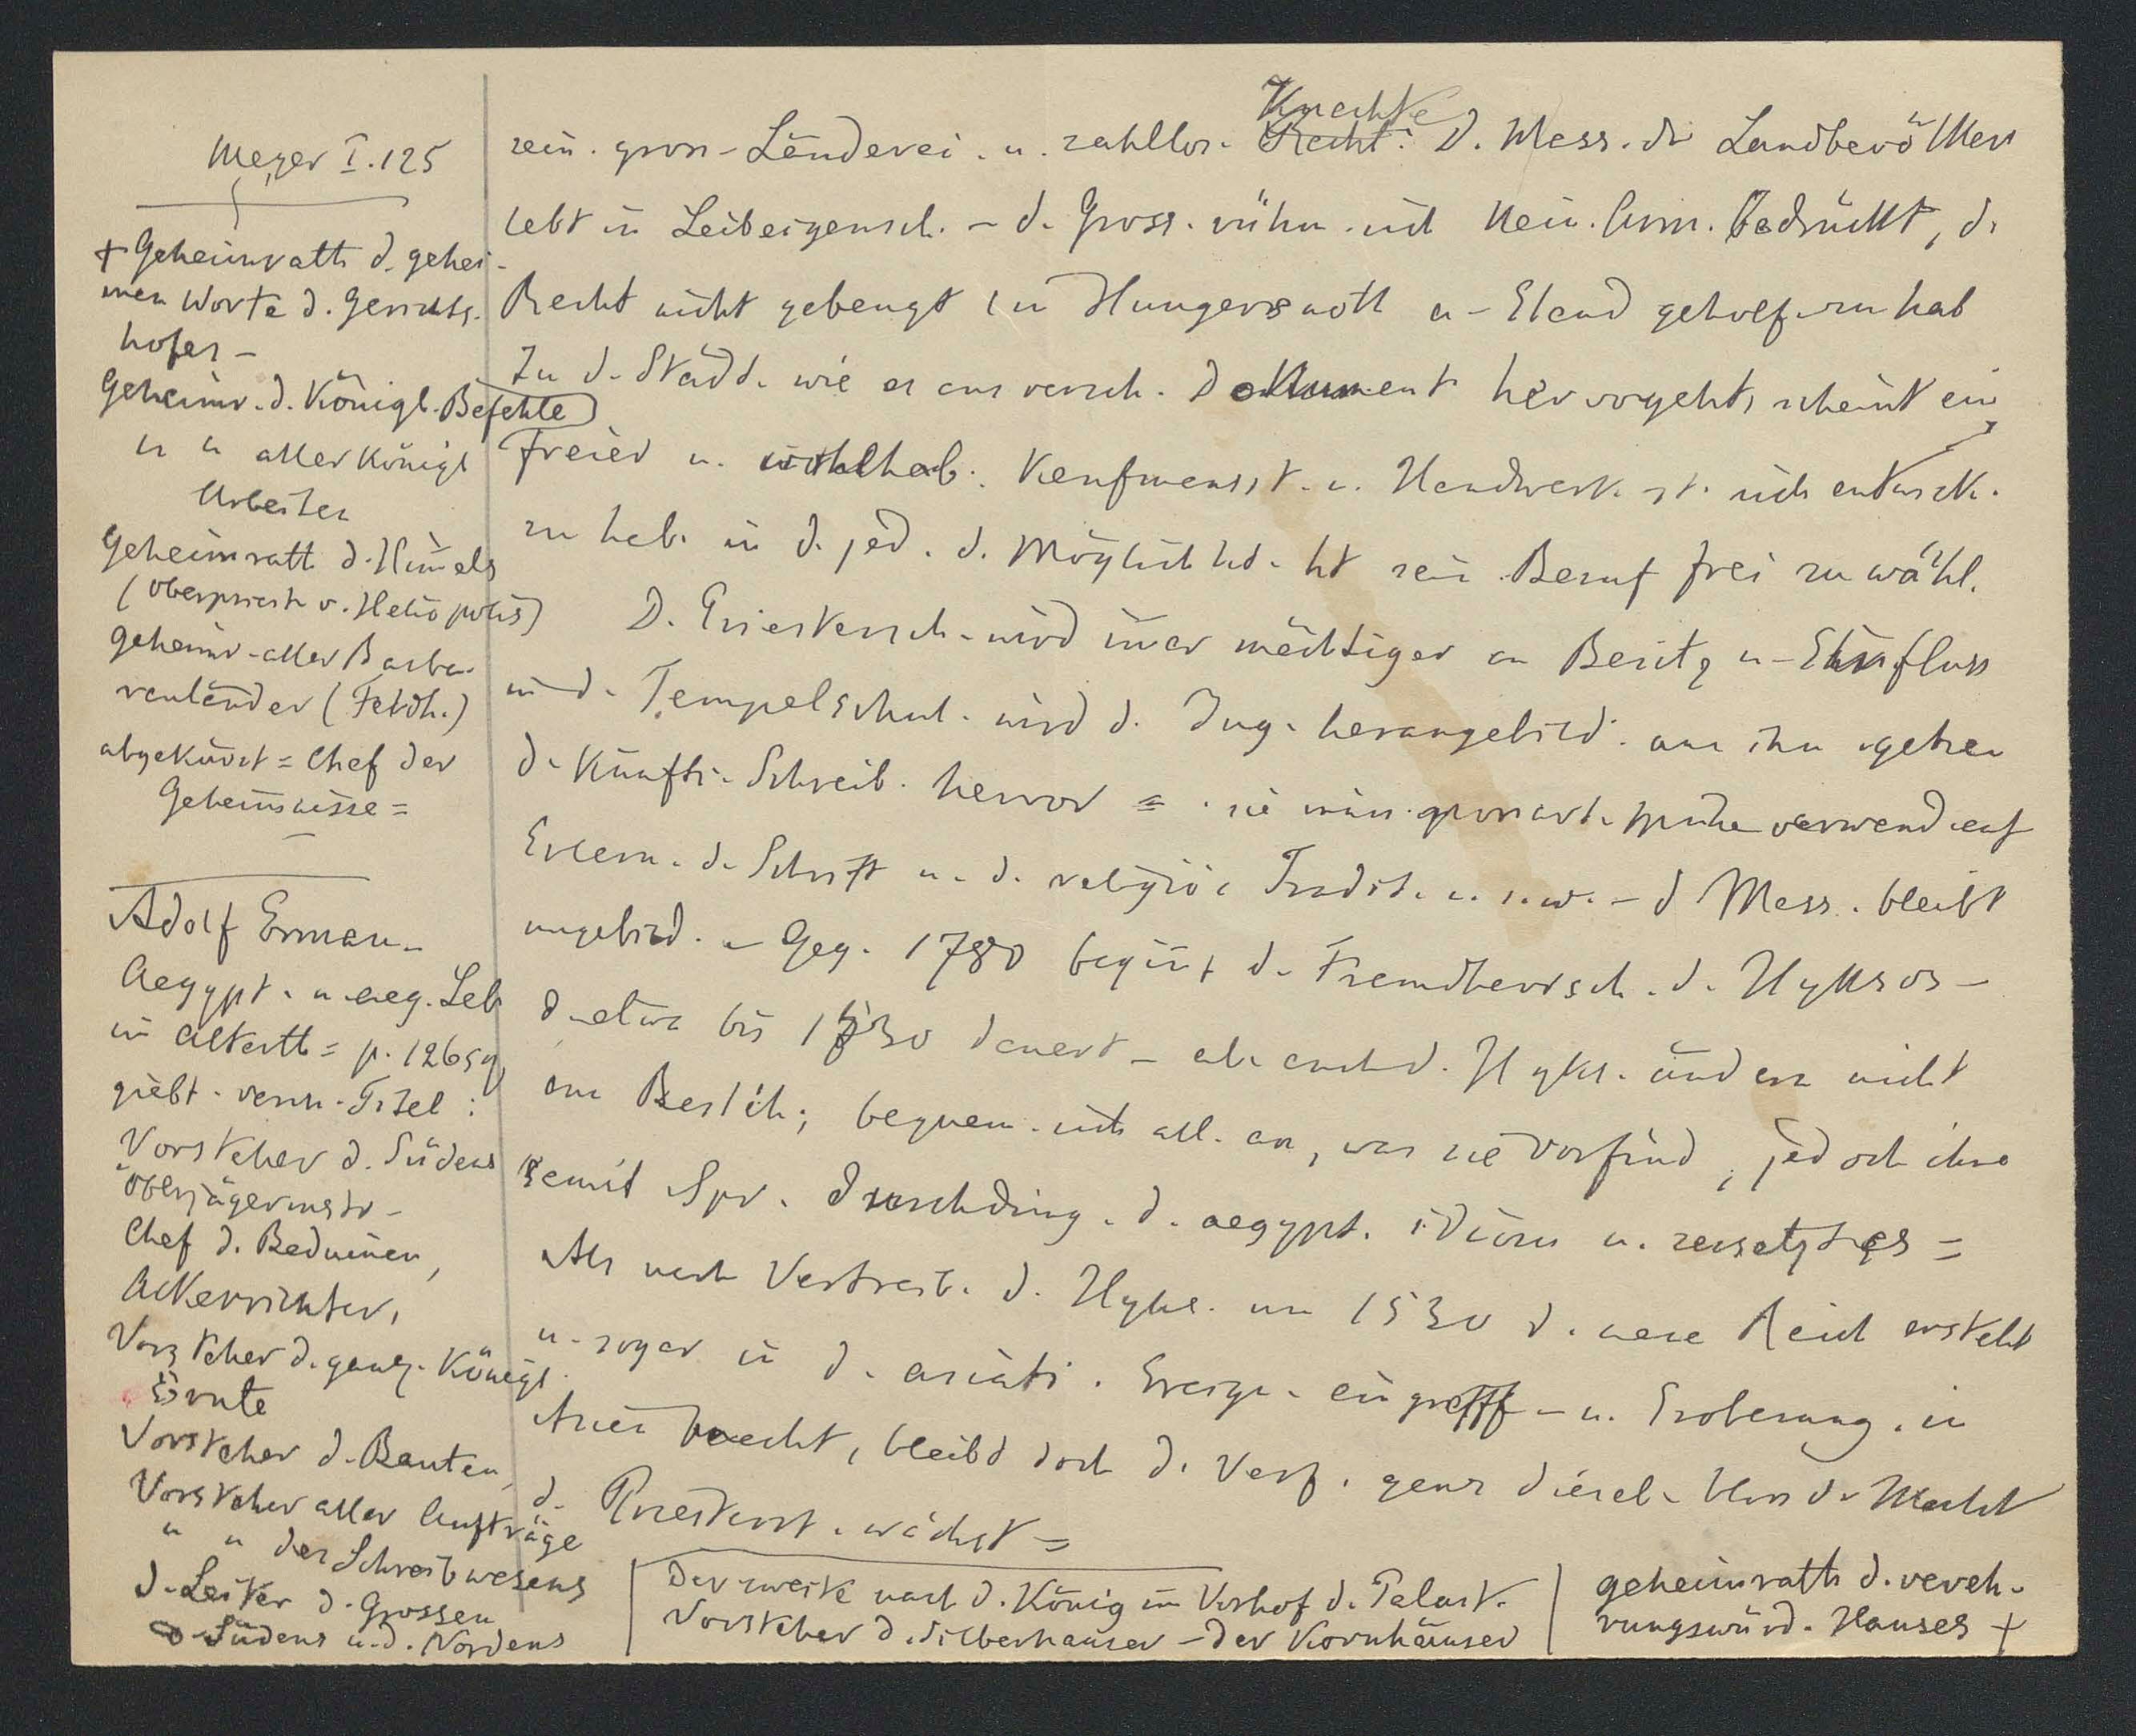 Meyer I. 125
+ Geheimrath d. gehei-
men Worte d. Gerichts-
hofes –
Geheimr. d. Königl. Befehle
u u aller Königl
Arbeiten
Geheimrath d. Himels
(Oberpriest v. Heliopolis)
Geheimr. aller Barba-
renländer (Feldh.)
abgekürzt = Chef der
Geheimnisse =
Adolf Erman –
Aegypt. u. aeg. Leb
im Altertth = p. 126 sq
giebt. versch. Titel :
Vorsteher d. Südens
Oberjägermstr –
Chef d. Beduinen,
Ackerrichter,
Vorsteher d. ganz. Königl.
Ernte
Vorsteher d. Bauten,
Vorsteher aller Aufträge
u u des Schreibwesens
d. Leiter d. Grossen
d. Südens u. d. Nordens
sein. gross. Länderei. u. zahllos. Knechte D. Mass. dr Landbevölker
lebt in Leibeigensch. – d. Gross. rühm. sich kein. Arm. bedrückt, d.
Recht nicht gebeugt in Hungersnoth u. Elend geholf. zu hab
In d. Städt. wie es aus versch. Dokument hervorgeht, scheint ein
freier u. wohlhab. Kaufmannsst. u. Handwerk. st. sich entwick.
zu hab. in d. jed. d. Möglichkt. ht sein Beruf frei zu wähl.
D. Priestersch. wird imer mächtiger an Besitz u. Einfluss
in d. Tempelschul. wird d. Jug. herangebild. aus ihn. gehen
d. künfti. Schreib. hervor = sie müss. grossart. Mühe verwend auf
Erlern. d. Schrift u. d. religiös Tradit. u. s. w. – d Mass. bleibt
ungebild. – Geg. 1780 begint d. Fremdherrsch. d. Hyksos –
d. etwa bis 1530 dauert – ab. auch d. Hyks. ändern nicht
am Besteh; bequem. sich all. an, was sie vorfind, jedoch ihre
semit Spr. durchdring. d. aegypt. Idiom u. zersetzt es =
Als nach Vertreib. d. Hyks. um 1530 d. neue Reich ersteht
u. sogar in d. asiati. Ereign. eingreift – u. Eroberung. in
Asien macht, bleibt doch d. Verf. ganz dieselb. bloss d. Macht
d. Priesterst. wächst =
Der zweite nach d. König im Vorhof d. Palast.
Vorsteher d. Silberhäuser – der Kornhäuser
geheimrath d. vereh-
rungswürd. Hauses +